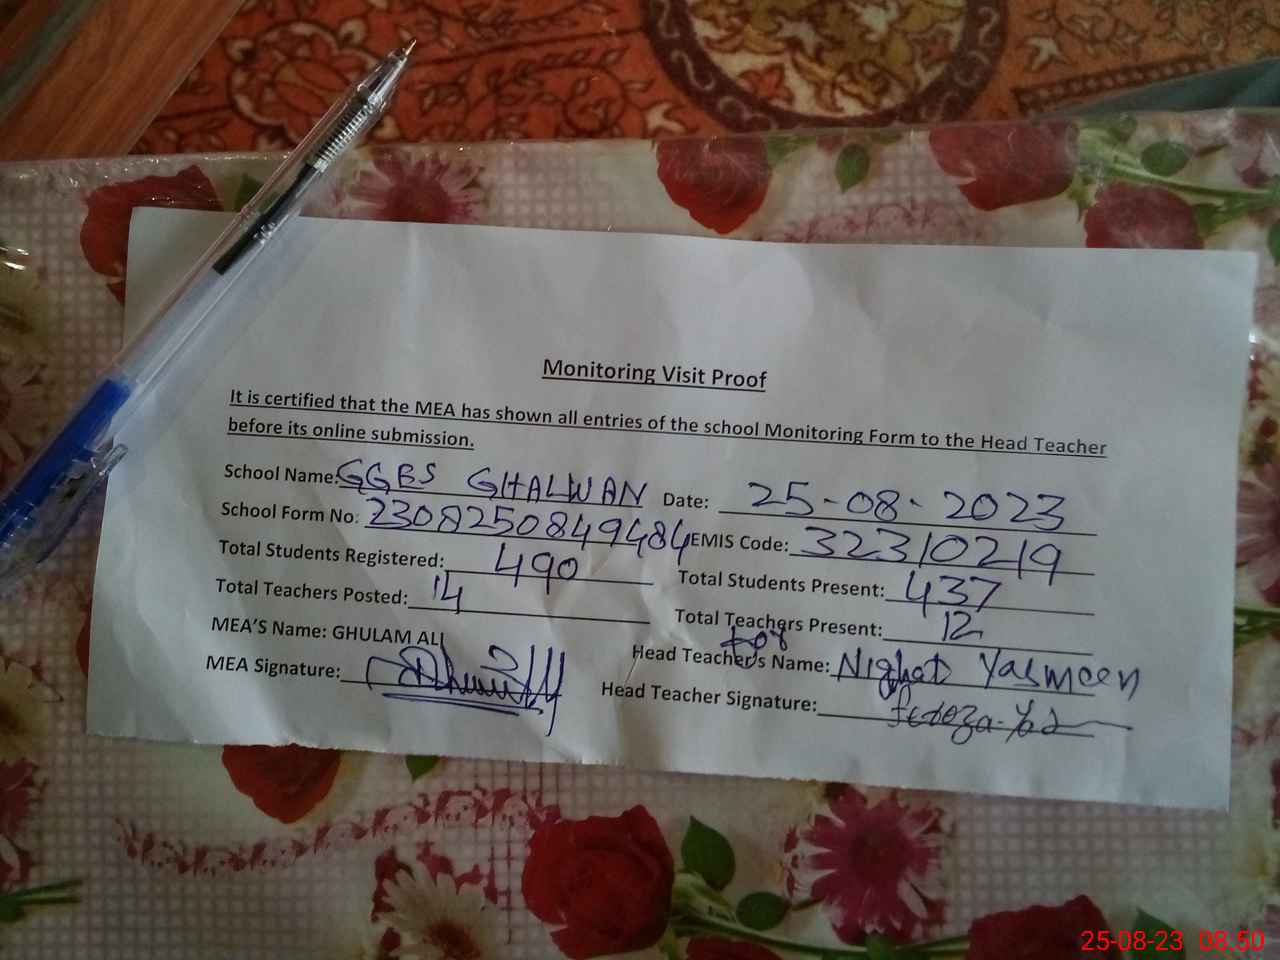 Monitoring Visit Proof
It is certified that the MEA has shown all entries of the school Monitoring Form to the Head Teacher
before its online submission.
School Name: GGES GHALWAN Date: 25-08-2023
School Form No: 2308250849484 EMIS Code: 32310219
Total Students Registered: 490 Total Students Present: 437
Total Teachers Posted: 14 Total Teachers Present: 12
MEA'S Name: GHULAM ALI for Head Teacher's Name: Nighat Yasmeen
MEA Signature: Head Teacher Signature:
25-08-23 08:50